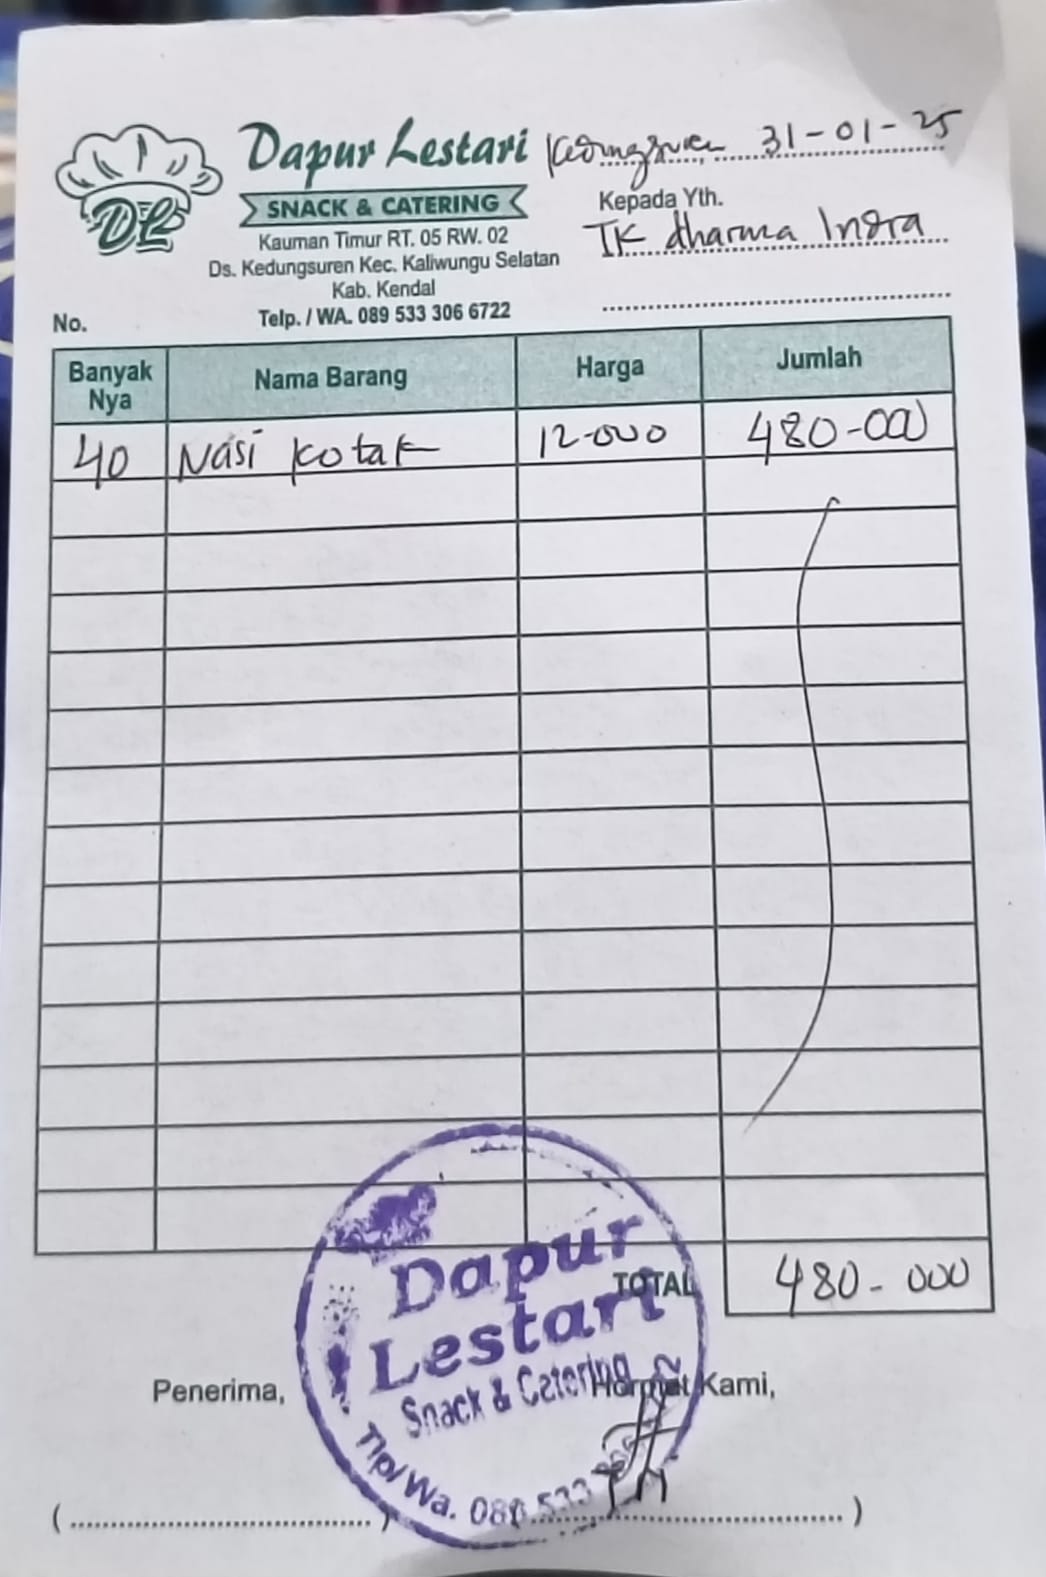 Dapur Lestari
DL
SNACK & CATERING
Kauman Timur RT. 05 RW. 02
Ds. Kedungsuren Kec. Kaliwungu Selatan
Kab. Kendal
Telp. / WA. 089 533 306 6722
Kedungsuren 31-01-25
Kepada Yth.
TK dharma Indra
No.
Banyak Nya Nama Barang Harga Jumlah
40 Nasi kotak 12-000 480-000
TOTAL 480-000
Penerima, Hormat Kami,
Dapur
Lestari
Snack & Catering
Tlp/Wa. 089 533